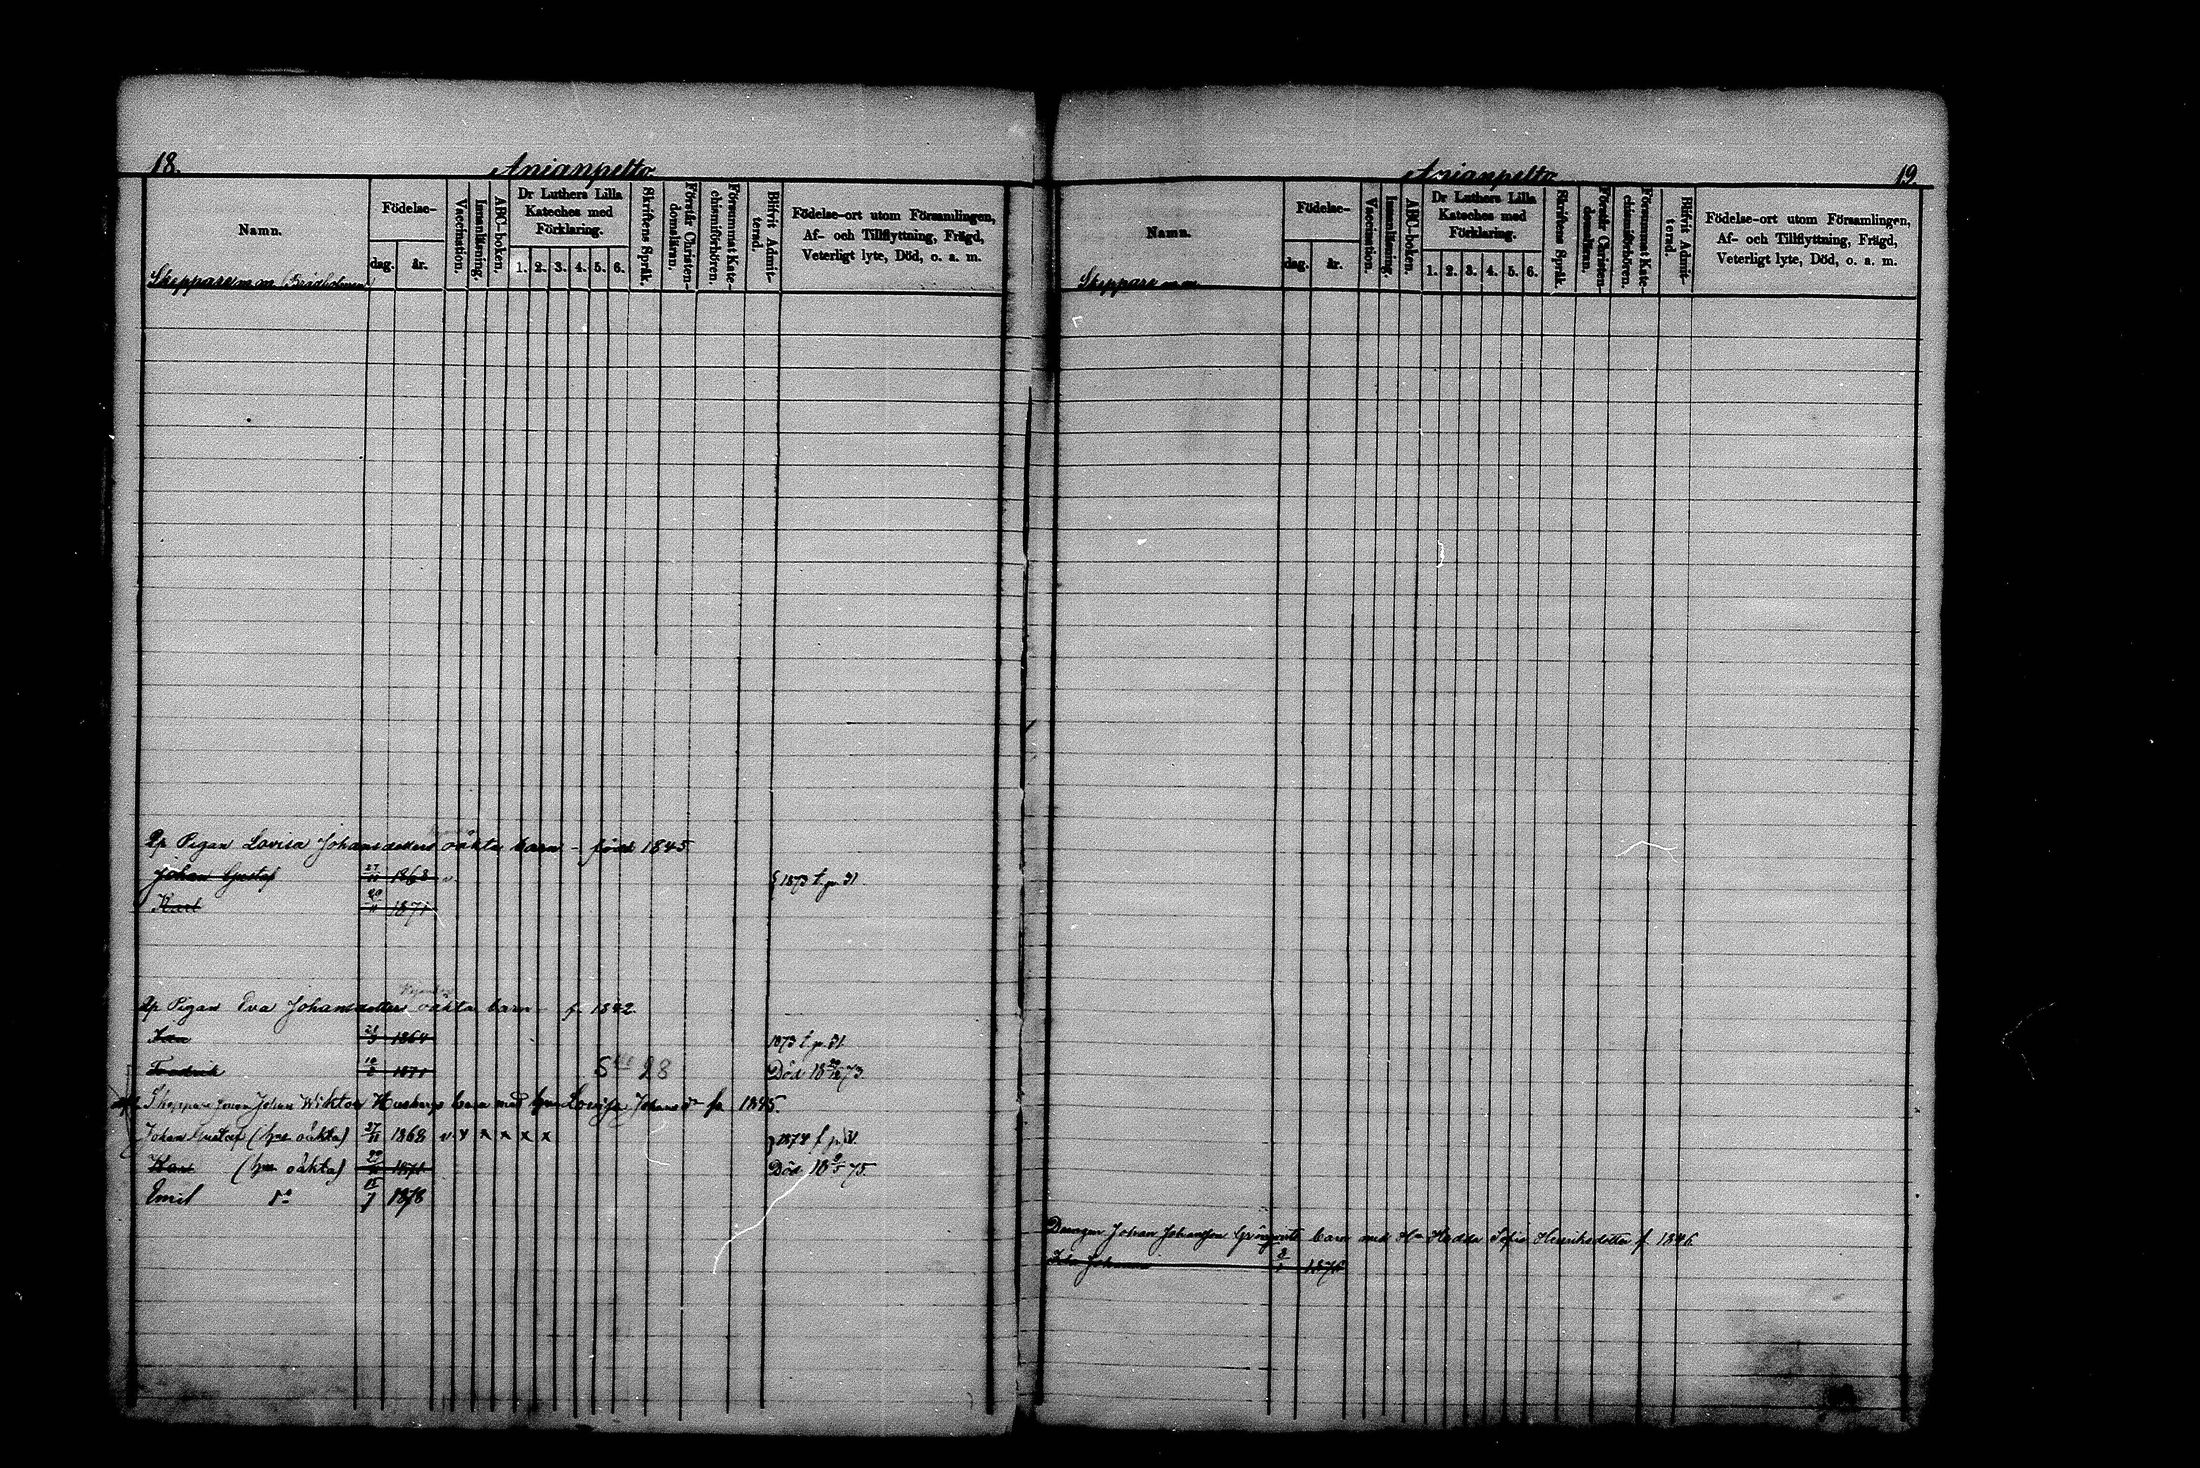 18.
Anianpelto
Namn.
Födelse-
dag.
år.
Vaccination.
Innanläsning.
ABC-boken.
Dr Luthers Lilla
Kateches med
Förklaring.
1. 2. 3. 4. 5. 6.
Skriftens Språk.
Förstår Christen-
domsläran.
Försummat Kate-
chismiförhören.
Blifvit Admit-
terad.
Födelse-ort utom Församlingen,
Af- och Tillflyttning, Frägd,
Veterligt lyte, Död, o. a. m.
Skeppare m m
Pigan Lovisa Johansdotters oäkta barn - född 1845
Johan Gustaf 27/11 1868 v. 1873 t. p. 31
Karl 20/11 1871
Pigan Eva Johansdotters oäkta barn f. 1842
1864 1873 t. p. 31
Fredrik 1871 28 Död 73
Johan Wiktor barn med Lovisa 1845.
Johan Gustaf (hus oäkta) 27/11 1868 v. x x x x x 1874 f. p.
Karl (hus oäkta) 1871 Död 18 75
Emil 1878
Anianpelto
19.
Namn.
Födelse-
dag.
år.
Vaccination.
Innanläsning.
ABC-boken.
Dr Luthers Lilla
Kateches med
Förklaring.
1. 2. 3. 4. 5. 6.
Skriftens Språk.
Förstår Christen-
domsläran.
Försummat Kate-
chismiförhören.
Blifvit Admit-
terad.
Födelse-ort utom Församlingen,
Af- och Tillflyttning, Frägd,
Veterligt lyte, Död, o. a. m.
Skeppare m m
Drengen Johan Johansson barn med Hedda Sofia Henriksdotter f. 1846
1876